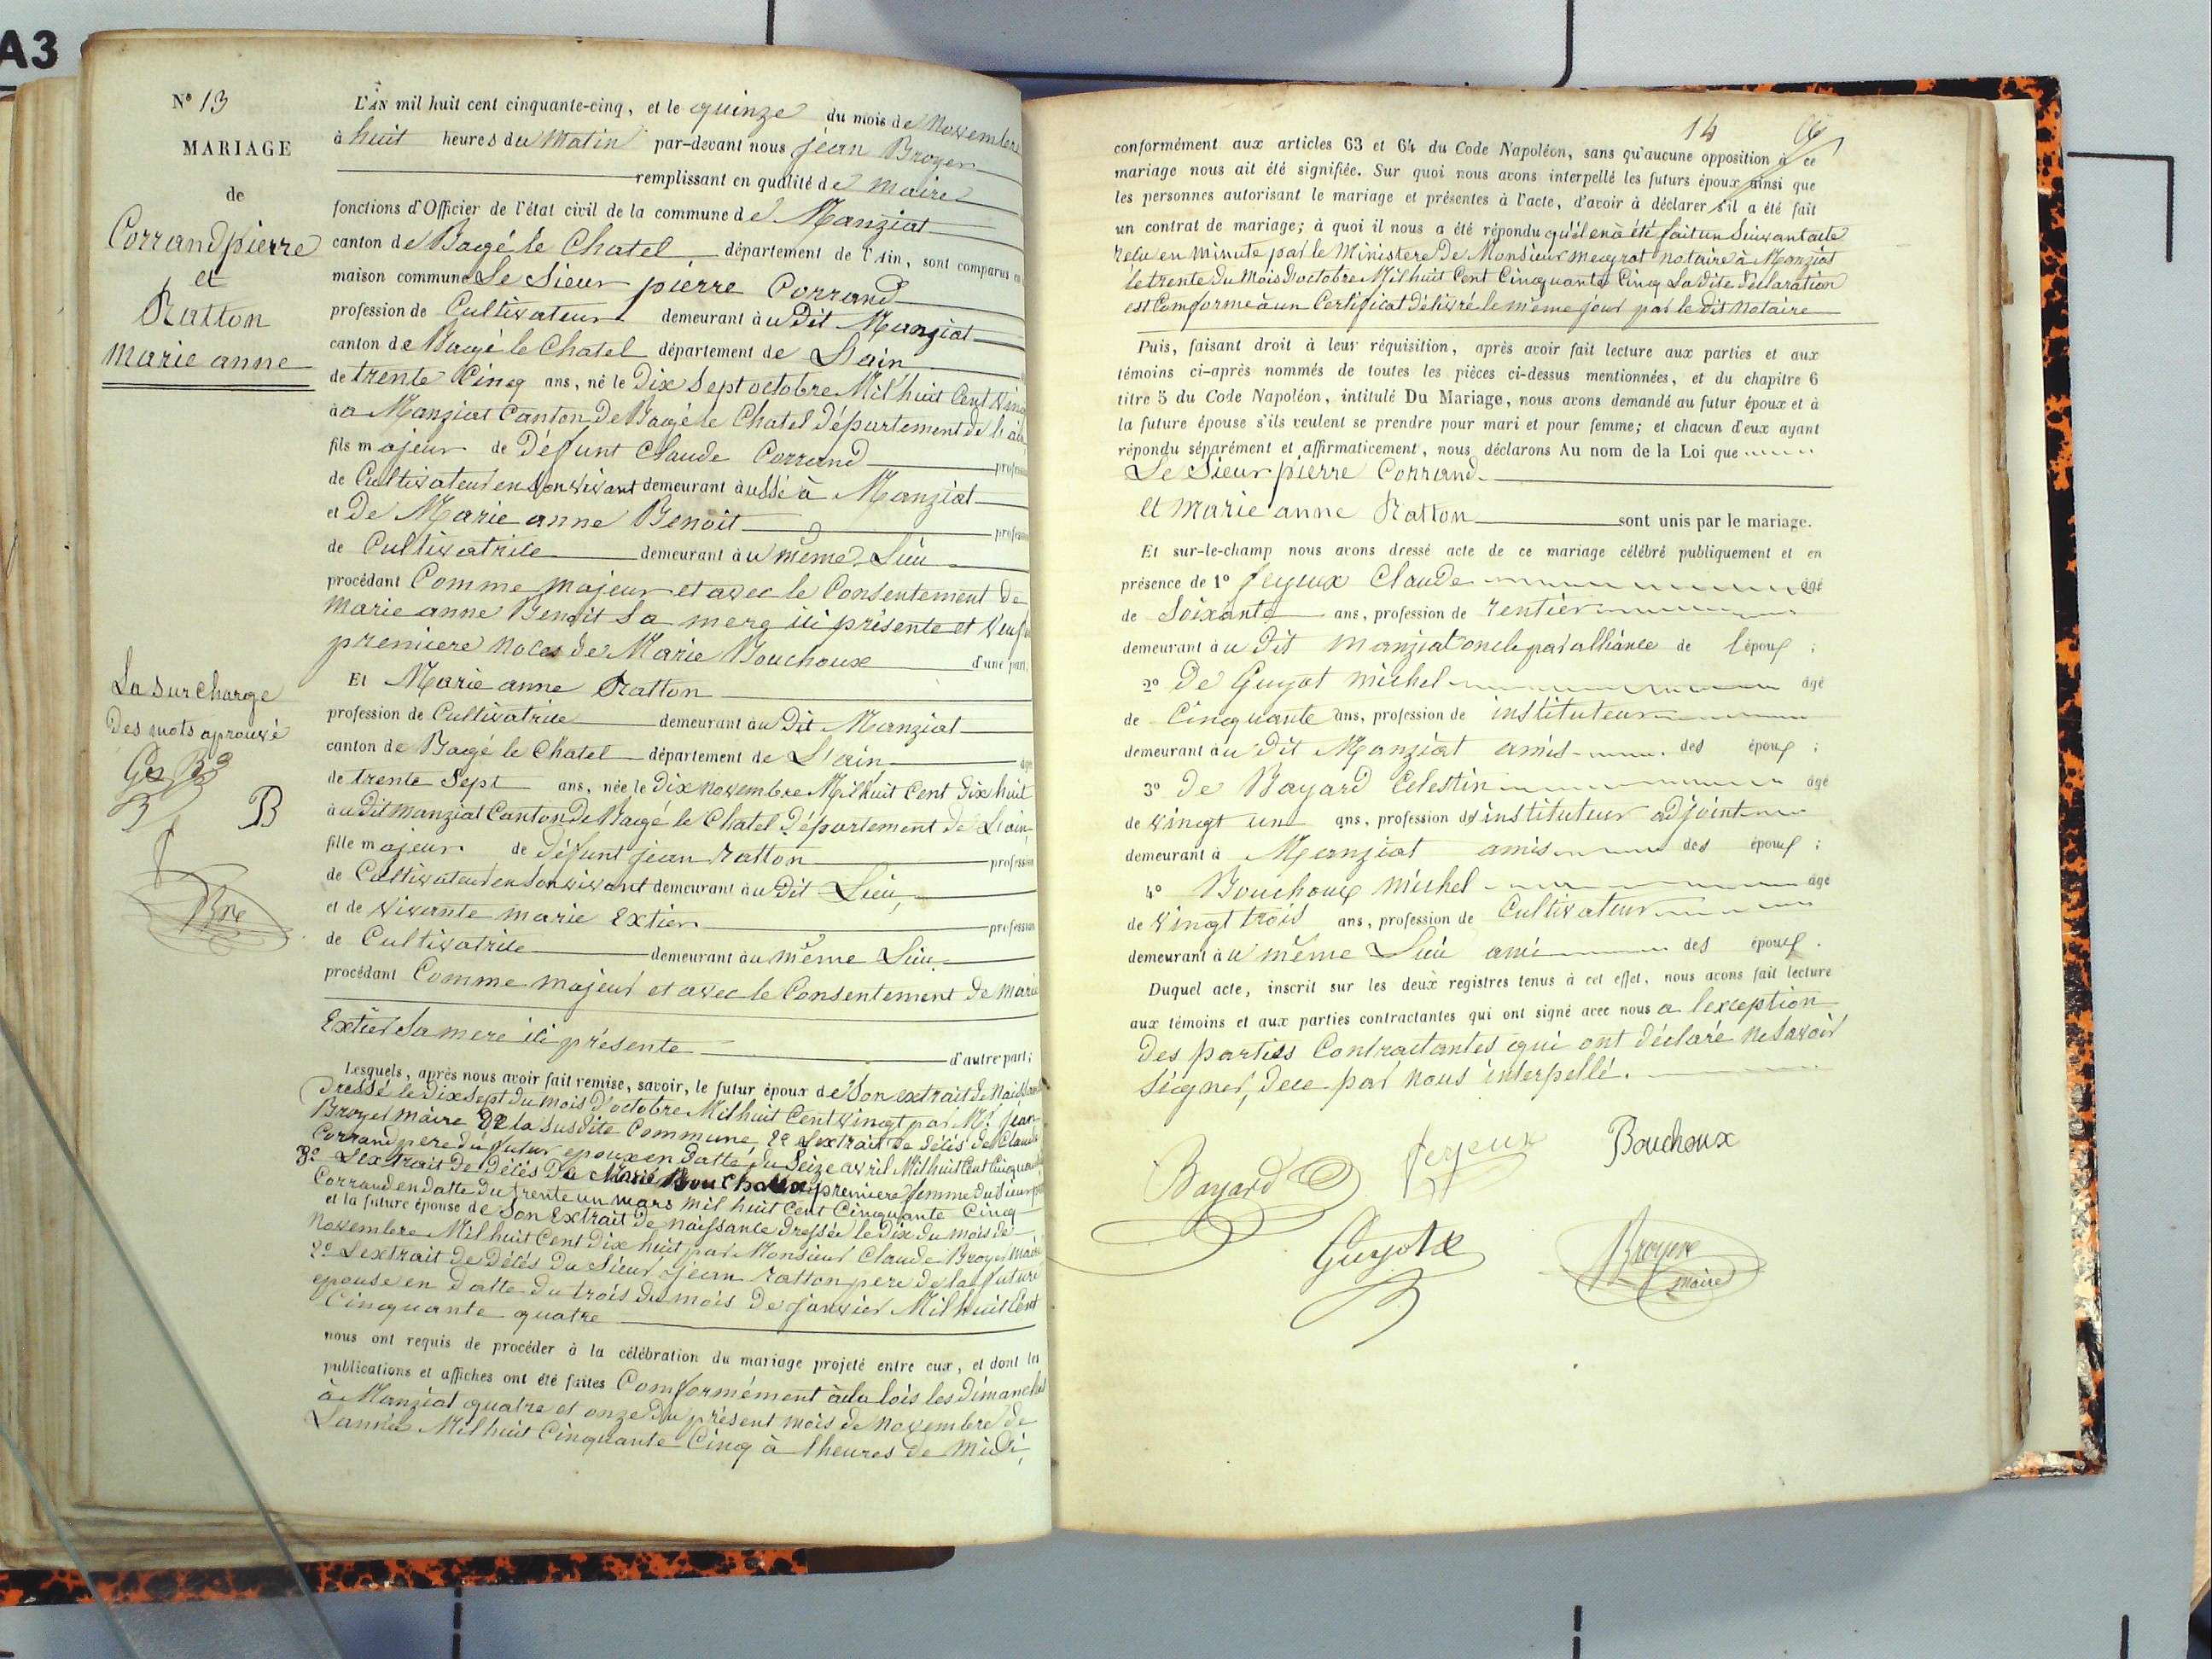 A3
N° 13
MARIAGE
de
Corrand pierre
et
Ratton
marie anne
La Surcharge
Des mots aprouvé
B
Bre
L'AN mil huit cent cinquante-cinq, et le quinze du mois de Novembre
à huit heures du Matin par-devant nous jean Broyer
remplissant en qualité de Maire
fonctions d'Officier de l'état civil de la commune de Manziat
canton de Bagé le Chatel département de l'Ain, sont comparus en
maison commune Le Sieur pierre Corrand
profession de Cultivateur demeurant au Dit Manziat
canton de Bagé le Chatel département de L'ain
de trente Cinq ans, né le Dix Sept octobre Mil huit Cent Vingt
à a Manziat Canton De Bagé le Chatel Département de l'ain
fils majeur de Défunt Claude Corrand profession
de Cultivateur en Son vivant demeurant aussi à Manziat
et De Marie anne Benoit profession
de Cultivatrice demeurant au même Lieu
procédant Comme majeur et avec le Consentement de
Marie anne Benoit Sa mere ici présente et Veuf en
premiere Noces de Marie Bouchoux d'une part,
Et Marie anne Ratton
profession de Cultivatrice demeurant au Dit Manziat
canton de Bagé le Chatel département de L'ain âgée
de trente Sept ans, née le Dix Novembre Mil huit Cent Dix huit
à u Dit Manziat Canton De Bagé le Chatel Département de L'ain
fille majeur de défunt jean Ratton profession
de Cultivateur en Son vivant demeurant au Dit Lieu,
et de Vivante marie Extier profession
de Cultivatrice demeurant au même Lieu
procédant Comme majeur et avec le Consentement de Marie
Extier Sa mere ici présente d'autre part;
Lesquels, après nous avoir fait remise, savoir, le futur époux de Son extrait de Naissance
Dressé le Dix Sept du Mois D'octobre Mil huit Cent vingt par Mr jean
Broyer Maire De la Susdite Commune 2e Lextrait de Délés de Claude
Corrand pere du futur epoux en Datte du Seize avril Mil huit Cent Cinquante
3e Lextrait De Délés De Marie Bouchoux premiere femme du Sieur pierre
Corrand en datte du trente un mars Mil huit Cent Cinquante Cinq
et la future épouse de Son Extrait De Naissance Dressée le Dix du Mois de
Novembre Mil huit Cent Dix huit par Monsieur Claude Broyer Maire
2e Lextrait de Délés Du Sieur jean Ratton pere de la future
epouse en Datte du trois du mois De janvier Mil huit Cent
Cinquante quatre
nous ont requis de procéder à la célébration du mariage projeté entre eux, et dont les
publications et affiches ont été faites Comformément à la lois les Dimanches
à Manziat quatre et onze Du présent mois de Novembre de
Lannée Mil huit Cinquante Cinq à lheures de Midi,
14
conformément aux articles 63 et 64 du Code Napoléon, sans qu'aucune opposition à ce
mariage nous ait été signifiée. Sur quoi nous avons interpellé les futurs époux ainsi que
les personnes autorisant le mariage et présentes à l'acte, d'avoir à déclarer s'il a été fait
un contrat de mariage; à quoi il nous a été répondu qu'il en à été fait un Suivant acte
recu en Minute par le Ministere De Monsieur Meyrat notaire à Manziat
le trente du Mois D'octobre Mil huit Cent Cinquante Cinq La Dite Déclaration
est Comforme à un Certificat Délivré le même jour par le Dit Notaire
Puis, faisant droit à leur réquisition, après avoir fait lecture aux parties et aux
témoins ci-après nommés de toutes les pièces ci-dessus mentionnées, et du chapitre 6
titre 5 du Code Napoléon, intitulé Du Mariage, nous avons demandé au futur époux et à
la future épouse s'ils veulent se prendre pour mari et pour femme; et chacun d'eux ayant
répondu séparément et affirmativement, nous déclarons Au nom de la Loi que
Le Sieur pierre Corrand
et Marie anne Ratton sont unis par le mariage.
Et sur-le-champ nous avons dressé acte de ce mariage célébré publiquement et en
présence de 1° feyeux Claude âgé
de Soixante ans, profession de rentier
demeurant au Dit Manziat oncle par alliance de l'époux ;
2° De Guyot Michel âgé
de Cinquante ans, profession de instituteur
demeurant au Dit Manziat amis des époux ;
3° De Bayard Celestin âgé
de Vingt un ans, profession d'instituteur adjoint
demeurant à Manziat amis des époux ;
4° Bouchoux Michel âgé
de Vingt trois ans, profession de Cultivateur
demeurant au même Lieu ami des époux.
Duquel acte, inscrit sur les deux registres tenus à cet effet, nous avons fait lecture
aux témoins et aux parties contractantes qui ont signé avec nous a lexception
Des parties Contractantes qui ont déclaré ne Savoir
Signer, Dece par Nous interpellé.
Bayard feyeux Bouchoux
Guyot Broyer
maire